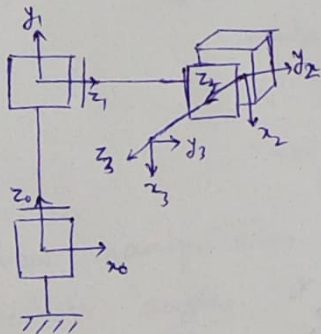 y₁
z₁
z₂
y₂
x₂
z₃
y₃
x₃
z₀
x₀